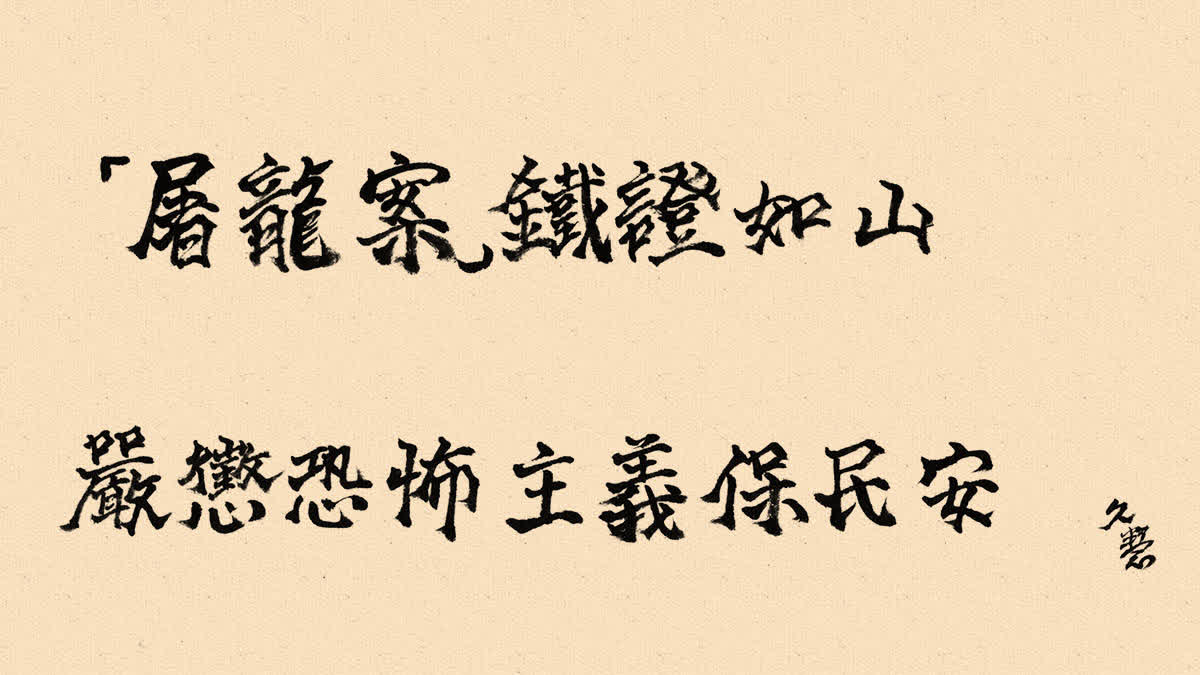 「屠龍案」鐵證如山
嚴懲恐怖主義保民安
久慧